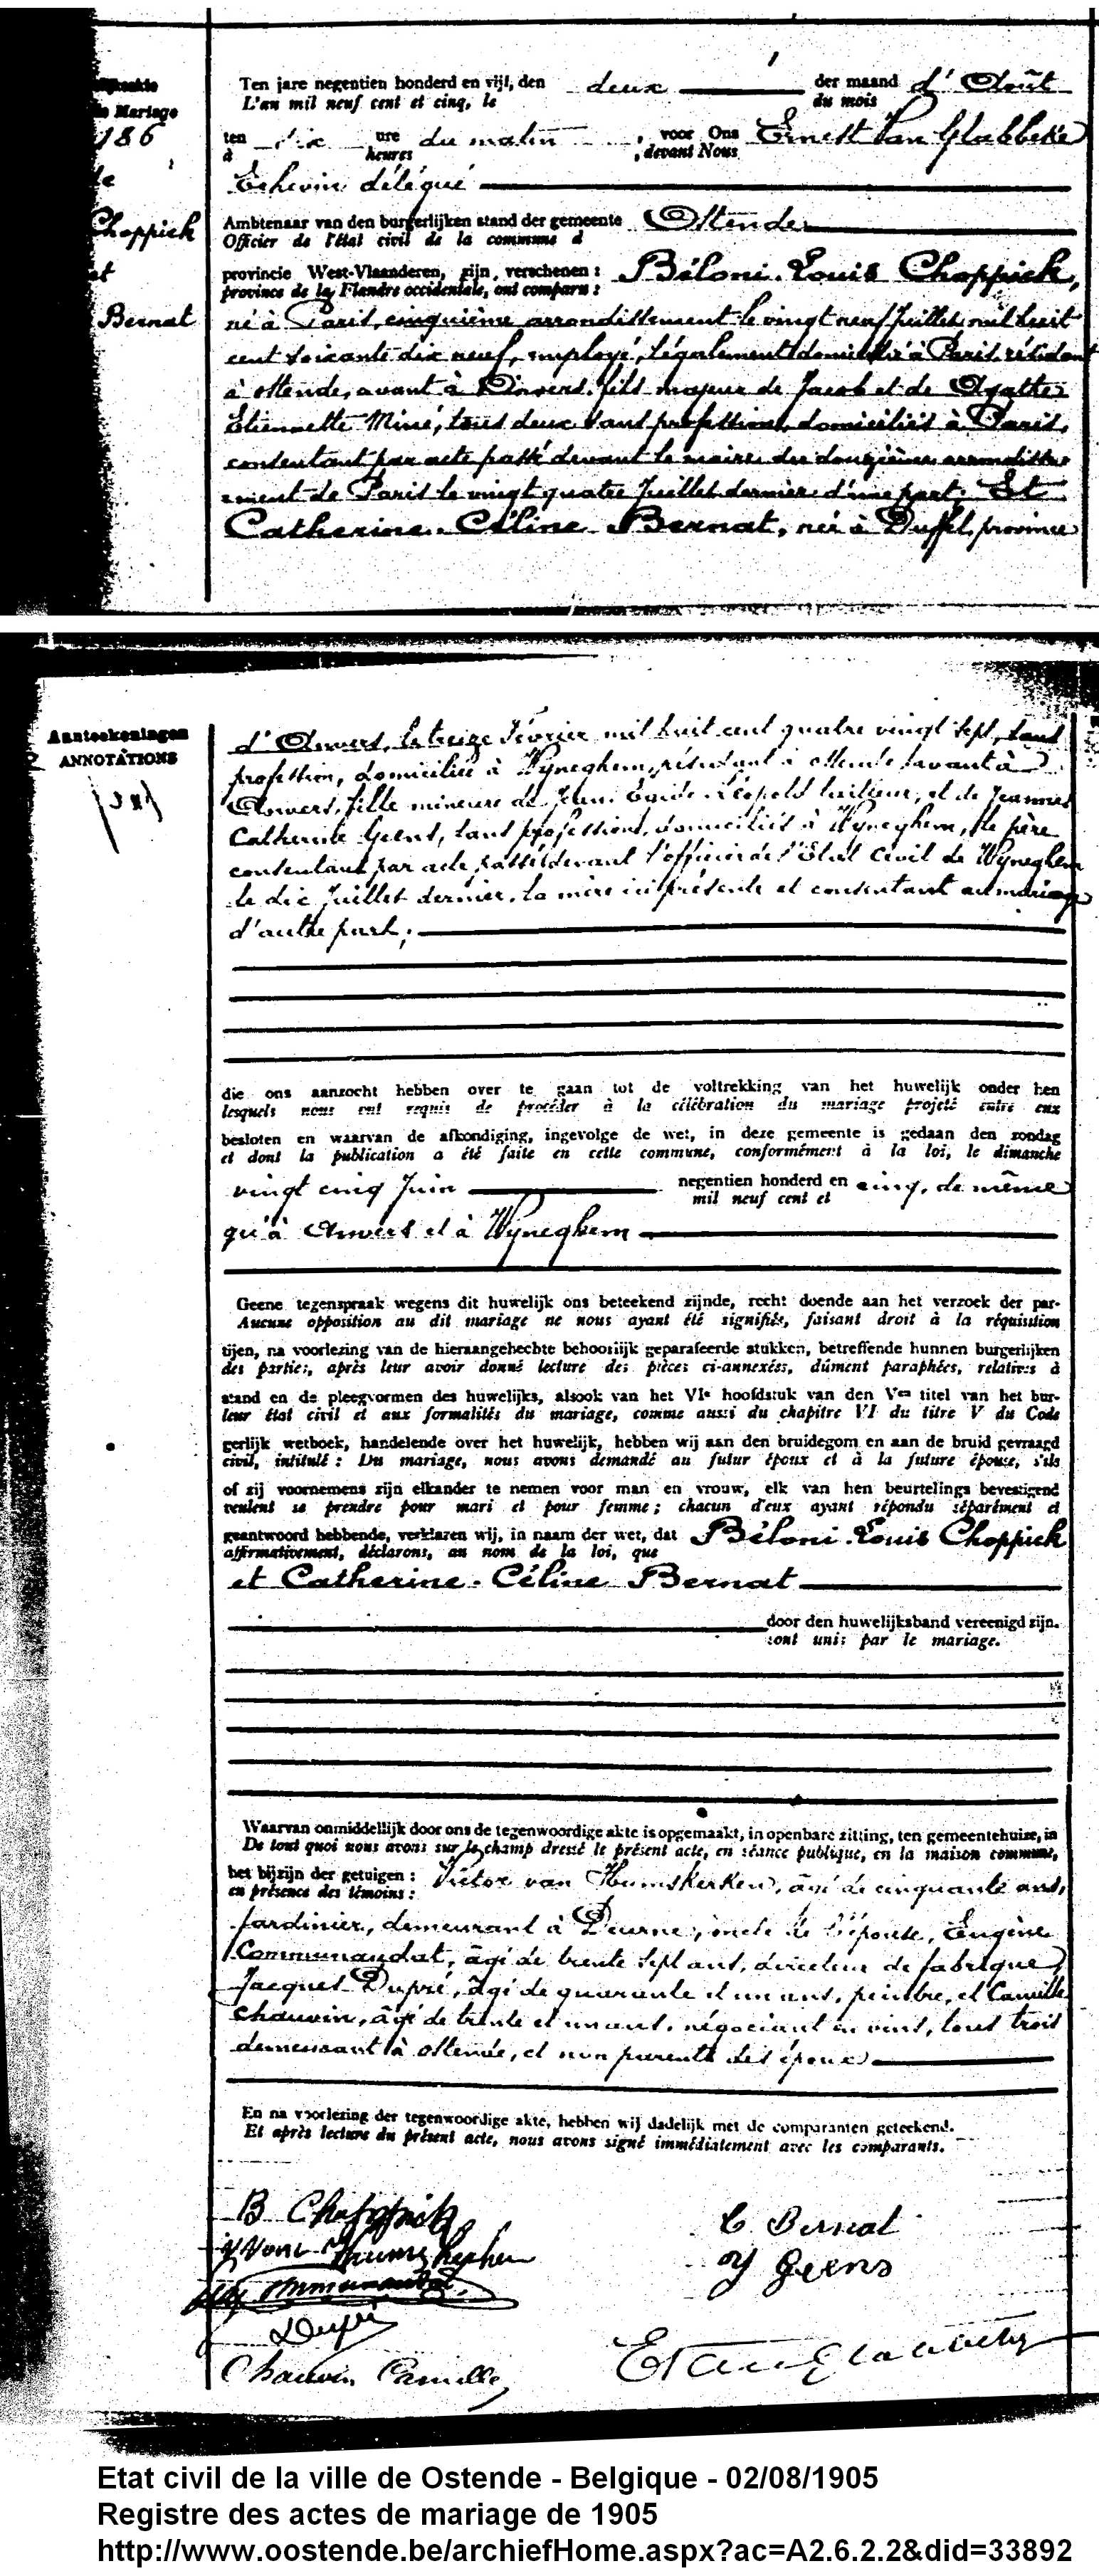 de Mariage
186
de
Choppick
et
Bernat
Ten jare negentien honderd en vijf, den deux der maand d'Août
L'an mil neuf cent et cinq, le du mois
ten dix ure du matin, voor Ons Ernest Van Glabbeke
à heures , devant Nous
Echevin délégué
Ambtenaar van den burgerlijken stand der gemeente Ostende
Officier de l'état civil de la commune d
provincie West-Vlaanderen, zijn verschenen : Béloni-Louis Choppick,
province de la Flandre occidentale, ont comparu :
né à Paris, cinquième arrondissement le vingt neuf Juillet mil huit
cent soixante dix neuf, employé, légalement domicilié à Paris, résidant
à Ostende, avant à Anvers, fils majeur de Jacob et de Agathe
Etiennette Miné, tous deux sans profession, domiciliés à Paris,
consentant par acte passé devant le maire du douzième arrondisse-
ment de Paris le vingt quatre Juillet dernier d'une part; Et
Catherine-Céline Bernat, née à Duffel, province
Aanteekeningen
ANNOTATIONS
d'Anvers, le treize Février mil huit cent quatre vingt sept, sans
profession, domiciliée à Wyneghem, résidant à Ostende, avant à
Anvers, fille mineure de Jean Léopold et de Jeanne
Catherine Geens, sans profession, domiciliés à Wyneghem, le père
consentant par acte passé devant l'officier de l'Etat Civil de Wyneghem
le dix Juillet dernier, la mère ici présente et consentant au mariage
d'autre part;
die ons aanzocht hebben over te gaan tot de voltrekking van het huwelijk onder hen
lesquels nous ont requis de procéder à la célébration du mariage projeté entre eux
besloten en waarvan de afkondiging, ingevolge de wet, in deze gemeente is gedaan den zondag
et dont la publication a été faite en cette commune, conformément à la loi, le dimanche
vingt cinq Juin negentien honderd en cinq, de même
mil neuf cent et
qu'à Anvers et à Wyneghem
Geene tegenspraak wegens dit huwelijk ons beteekend zijnde, recht doende aan het verzoek der par-
Aucune opposition au dit mariage ne nous ayant été signifiée, faisant droit à la réquisition
tijen, na voorlezing van de hieraangehechte behoorlijk geparafeerde stukken, betreffende hunnen burgerlijken
des parties, après leur avoir donné lecture des pièces ci-annexées, dûment paraphées, relatives à
stand en de pleegvormen des huwelijks, alsook van het VIe hoofdstuk van den Ven titel van het bur-
leur état civil et aux formalités du mariage, comme aussi du chapitre VI du titre V du Code
gerlijk wetboek, handelende over het huwelijk, hebben wij aan den bruidegom en aan de bruid gevraagd
civil, intitulé : Du mariage, nous avons demandé au futur époux et à la future épouse, s'ils
of zij voornemens zijn elkander te nemen voor man en vrouw, elk van hen beurtelings bevestigend
veulent se prendre pour mari et pour femme ; chacun d'eux ayant répondu séparément et
geantwoord hebbende, verklaren wij, in naam der wet, dat Béloni-Louis Choppick
affirmativement, déclarons, au nom de la loi, que
et Catherine-Céline Bernat
door den huwelijksband vereenigd zijn.
sont unis par le mariage.
Waarvan onmiddellijk door ons de tegenwoordige akte is opgemaakt, in openbare zitting, ten gemeentehuize, in
De tout quoi nous avons sur le champ dressé le présent acte, en séance publique, en la maison commune,
het bijzijn der getuigen : Victor van Humskerken, âgé de cinquante ans,
en présence des témoins :
jardinier, demeurant à Deurne, oncle de l'épouse, Eugène
Communaudat, âgé de trente sept ans, directeur de fabrique,
Jacques Dupré, âgé de quarante et un ans, peintre, et Camille
Chauvin, âgé de trente et un ans, négociant en vins, tous trois
demeurant à Ostende, et non parents des époux
En na voorlezing der tegenwoordige akte, hebben wij dadelijk met de comparanten geteekend.
Et après lecture du présent acte, nous avons signé immédiatement avec les comparants.
B Choppick
C Bernat
J Geens
Dupré
Chauvin Camille
Etat civil de la ville de Ostende - Belgique - 02/08/1905
Registre des actes de mariage de 1905
http://www.oostende.be/archiefHome.aspx?ac=A2.6.2.2&did=33892